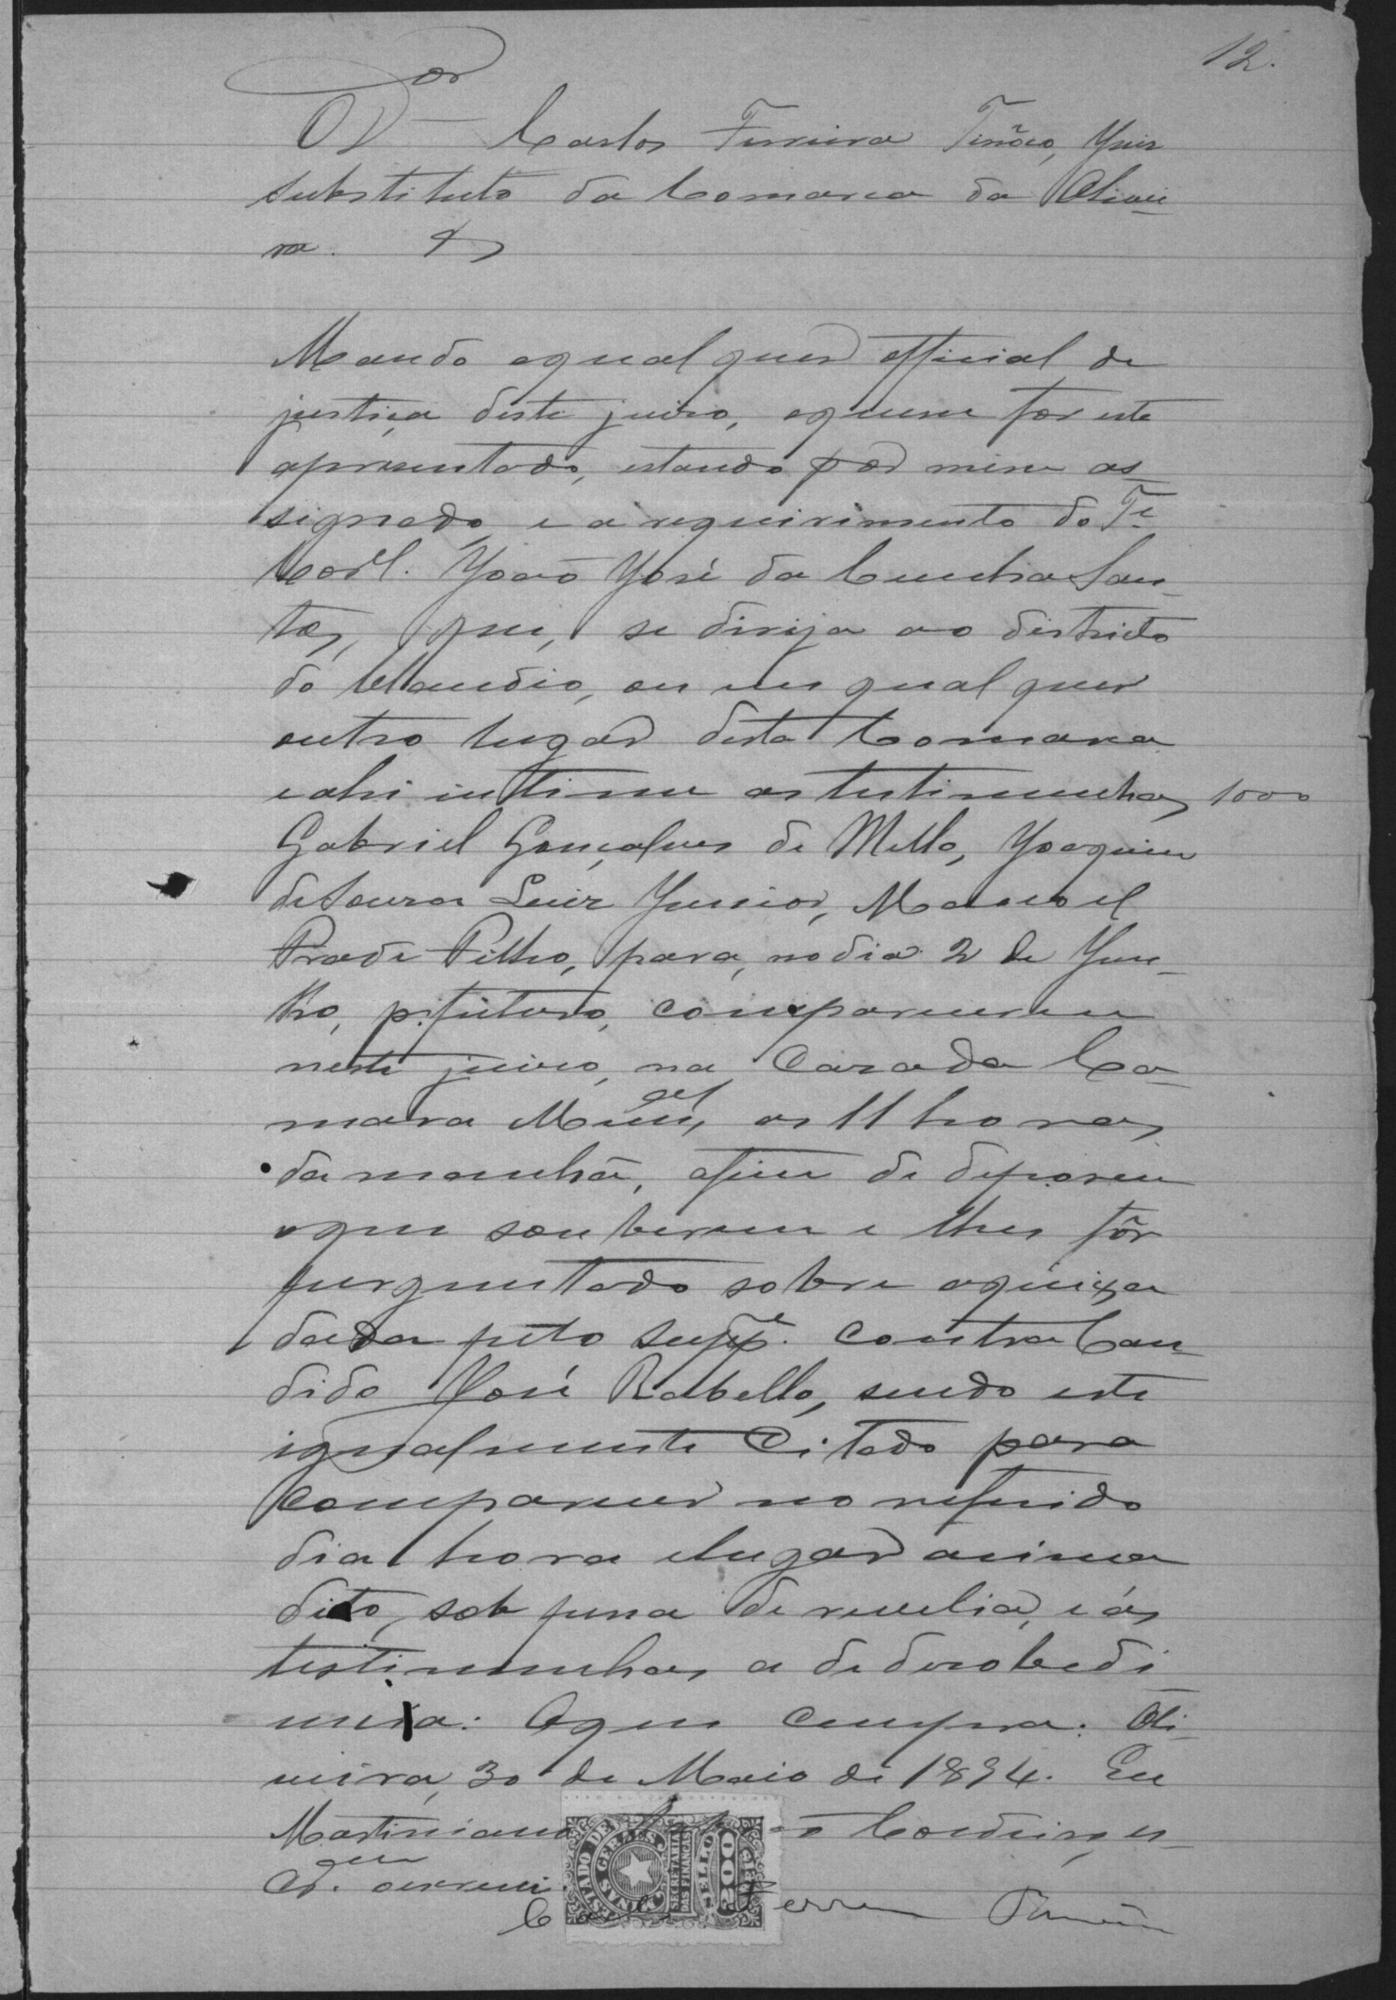 12.
O Dor Carlos Ferreira Tinôco, Juiz
substituto da Comarca da Olivei-
ra. &
Mando a qual quer official de
justiça deste juizo, a quem for este
apresentado, estando por mim as-
signado, e a requirimento do Te
Corel. João José da Cunha San-
tos, que, se dirija ao districto
do Claudio, ou em qual quer
outro lugar desta Comarca
e ahi intime as testimunhas 1000
Gabriel Gonçalves de Mello, Joaquim
de Souza Luiz Junior, Manoel
Prado Filho, para, no dia 2 de Ju-
nho, p. futuro, comparecerem
neste juizo, na Caza da Ca-
mara Munal, as 11 horas
da manhã, afim de deporem
o que souberem e lhes fôr
perguntado sobre a queixa
dada pelo suppe. contra Can-
dido José Rabello, sendo este
igualmente Citado para
comparecer no referido
dia hora e lugar acima
dito, sob pena de revelia, e ás
testimunhas a de dezobedi
encia. O que cumpra. Oli-
veira, 30 de Maio de 1894. Eu
Martiniano Cordeiro, es-
cram. escrevi.
Carlos Ferreira Tinôco
ESTADO DE MINAS GERAES
SECRETARIA DAS FINANÇAS
SELLO
200
REIS